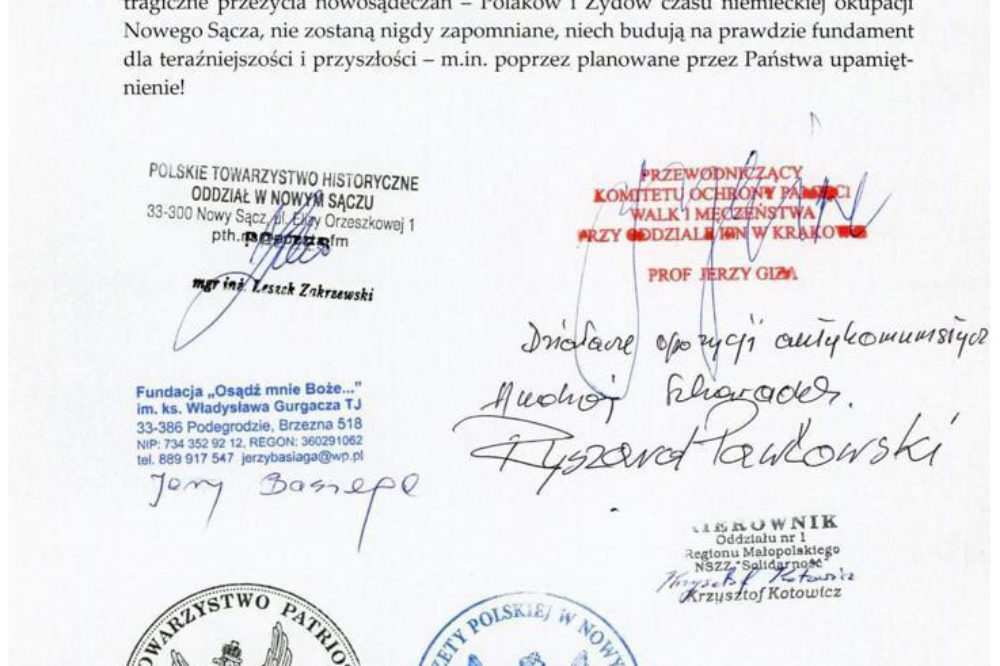 tragiczne przeżycia nowosądeczan – Polaków i Żydów czasu niemieckiej okupacji
Nowego Sącza, nie zostaną nigdy zapomniane, niech budują na prawdzie fundament
dla teraźniejszości i przyszłości – m.in. poprzez planowane przez Państwa upamięt-
nienie!
POLSKIE TOWARZYSTWO HISTORYCZNE
ODDZIAŁ W NOWYM SĄCZU
33-300 Nowy Sącz, ul. Elizy Orzeszkowej 1
mgr inż. Leszek Zakrzewski
PRZEWODNICZĄCY
KOMITETU OCHRONY PAMIĘCI
WALK I MĘCZEŃSTWA
PRZY ODDZIALE IPN W KRAKOWIE
PROF JERZY GIZA
Działacze opozycji antykomunistycz
Fundacja „Osądź mnie Boże..."
im. ks. Władysława Gurgacza TJ
33-386 Podegrodzie, Brzezna 518
NIP: 734 352 92 12, REGON: 360291062
tel. 889 917 547 jerzybasiaga@wp.pl
Ryszard Pawłowski
KIEROWNIK
Oddziału nr 1
Regionu Małopolskiego
NSZZ "Solidarność"
Krzysztof Kotowicz
Krzysztof Kotowicz
OWARZYSTWO PATRIO
ETY POLSKIEJ W NOWY